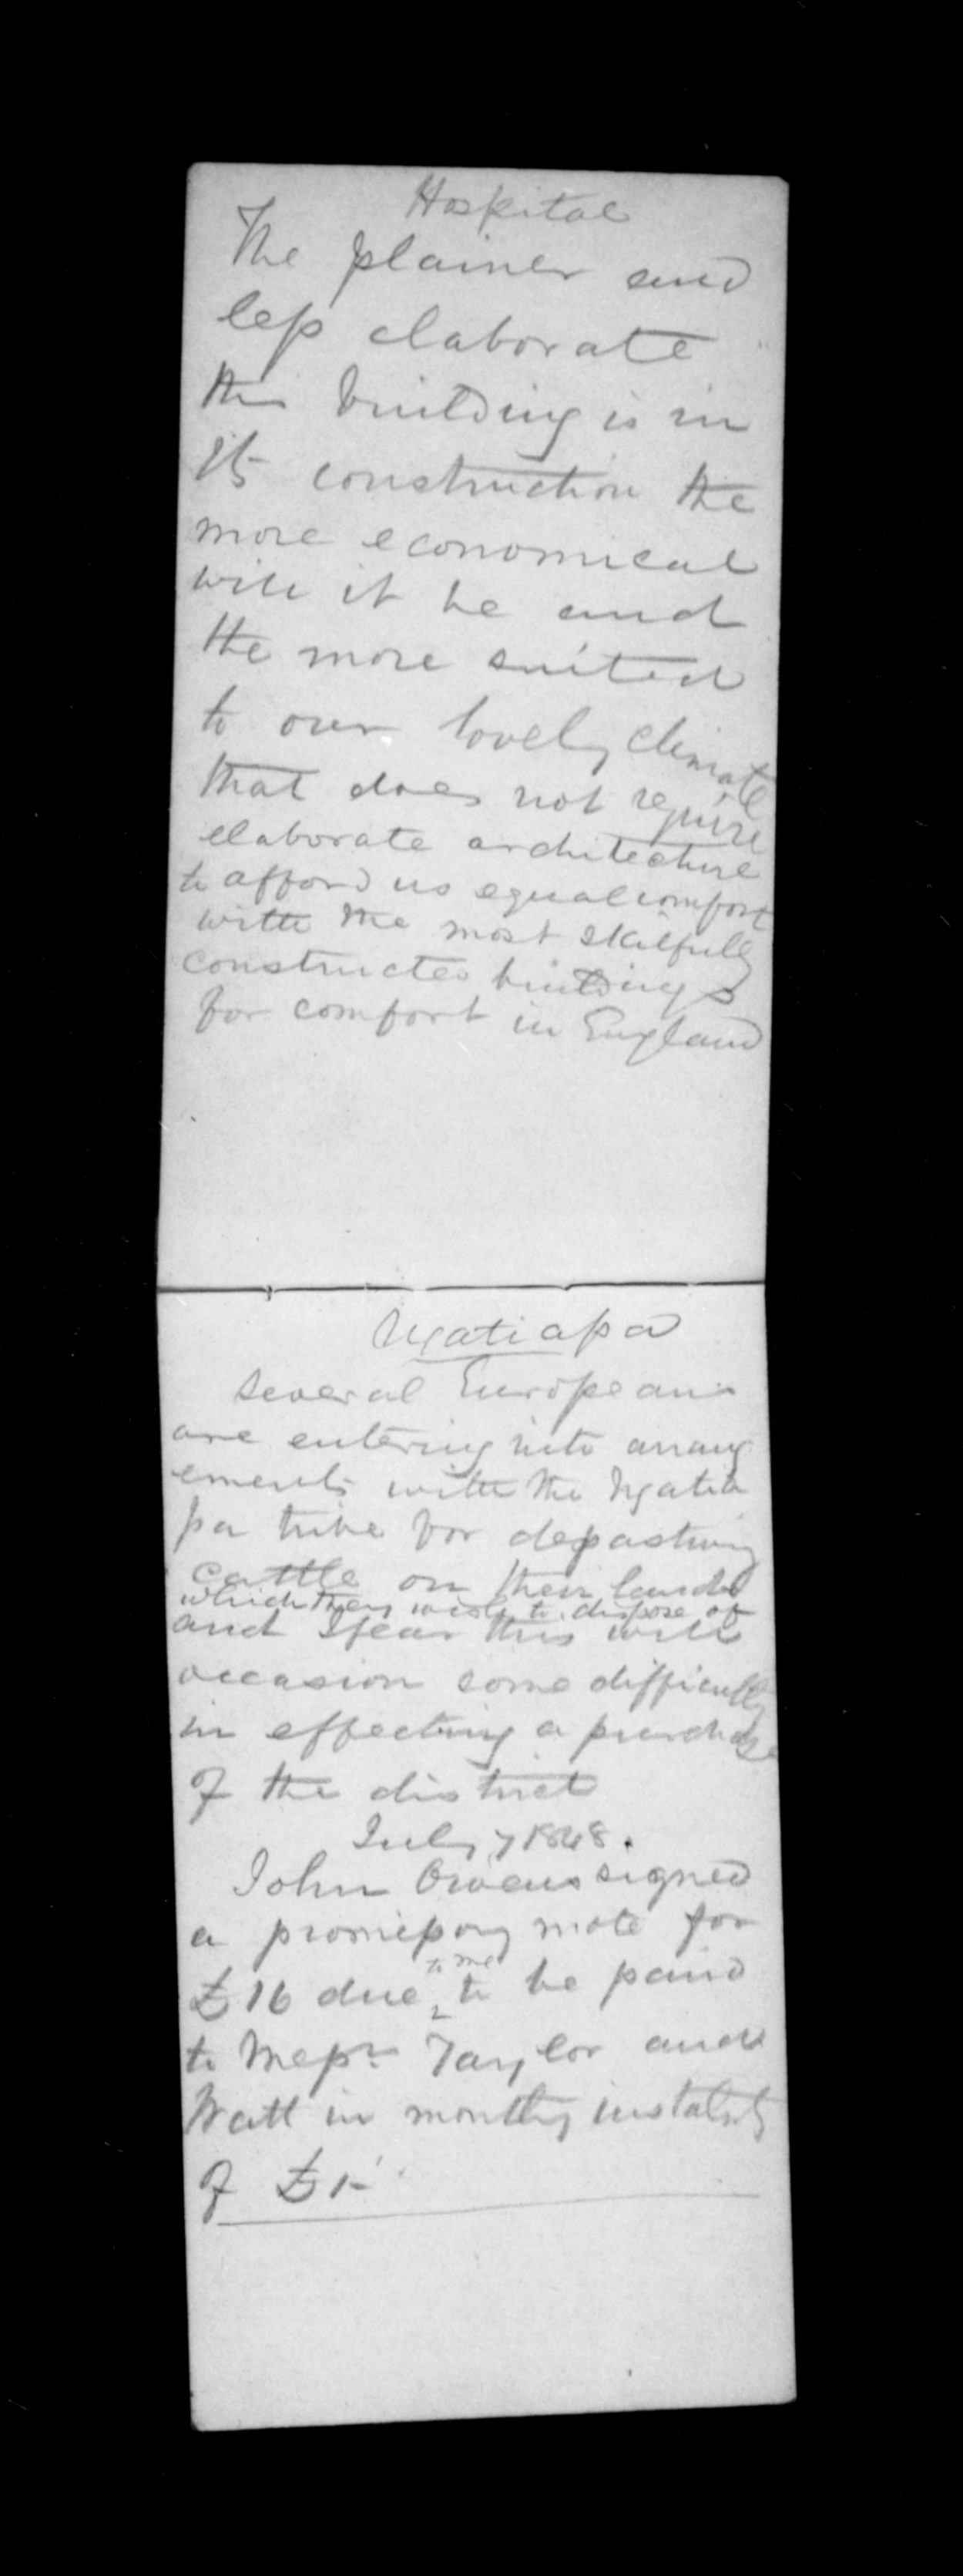 Hospital
The plainer and
less elaborate
this building is in
its construction the
more economical
will it be and
the more suited
to our lovely climate
that does not require
elaborate architecture
to afford us equal comfort
with the most skilfully
constructed buildings
for comfort in England
Ngatiapa
Several Europeans
are entering into arrang
ements with the Ngatia
pa tribe for depasturing
cattle on their lands
which they wish to dispose of
and I fear this will
occasion some difficulty
in effecting a purchase
of the district
July 7 1848.
John Owens signed
a promissory note for
to me
£16 due to be paid
to Messrs Taylor and
Watt in monthly instalmts
of £1-